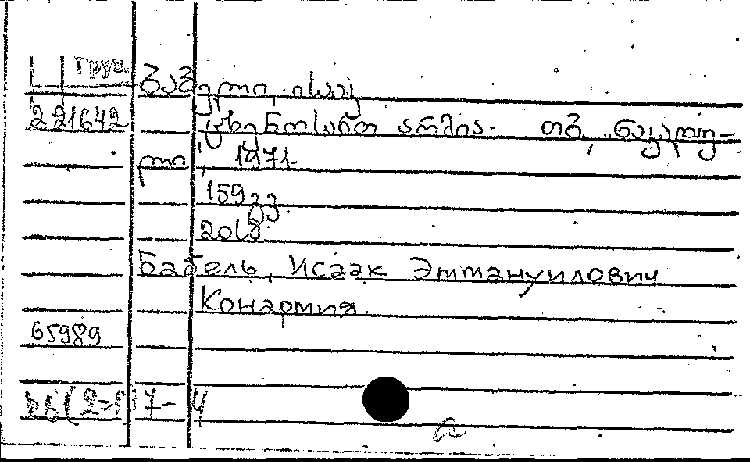 Груз.
ბაბელი, ისააკ
221642 ცხენოსანთა არმია. თბ., ნაკადუ-
ლი, 1971.
159გვ.
2018
Бабель, Исаак Эммануилович
Конармия.
65989